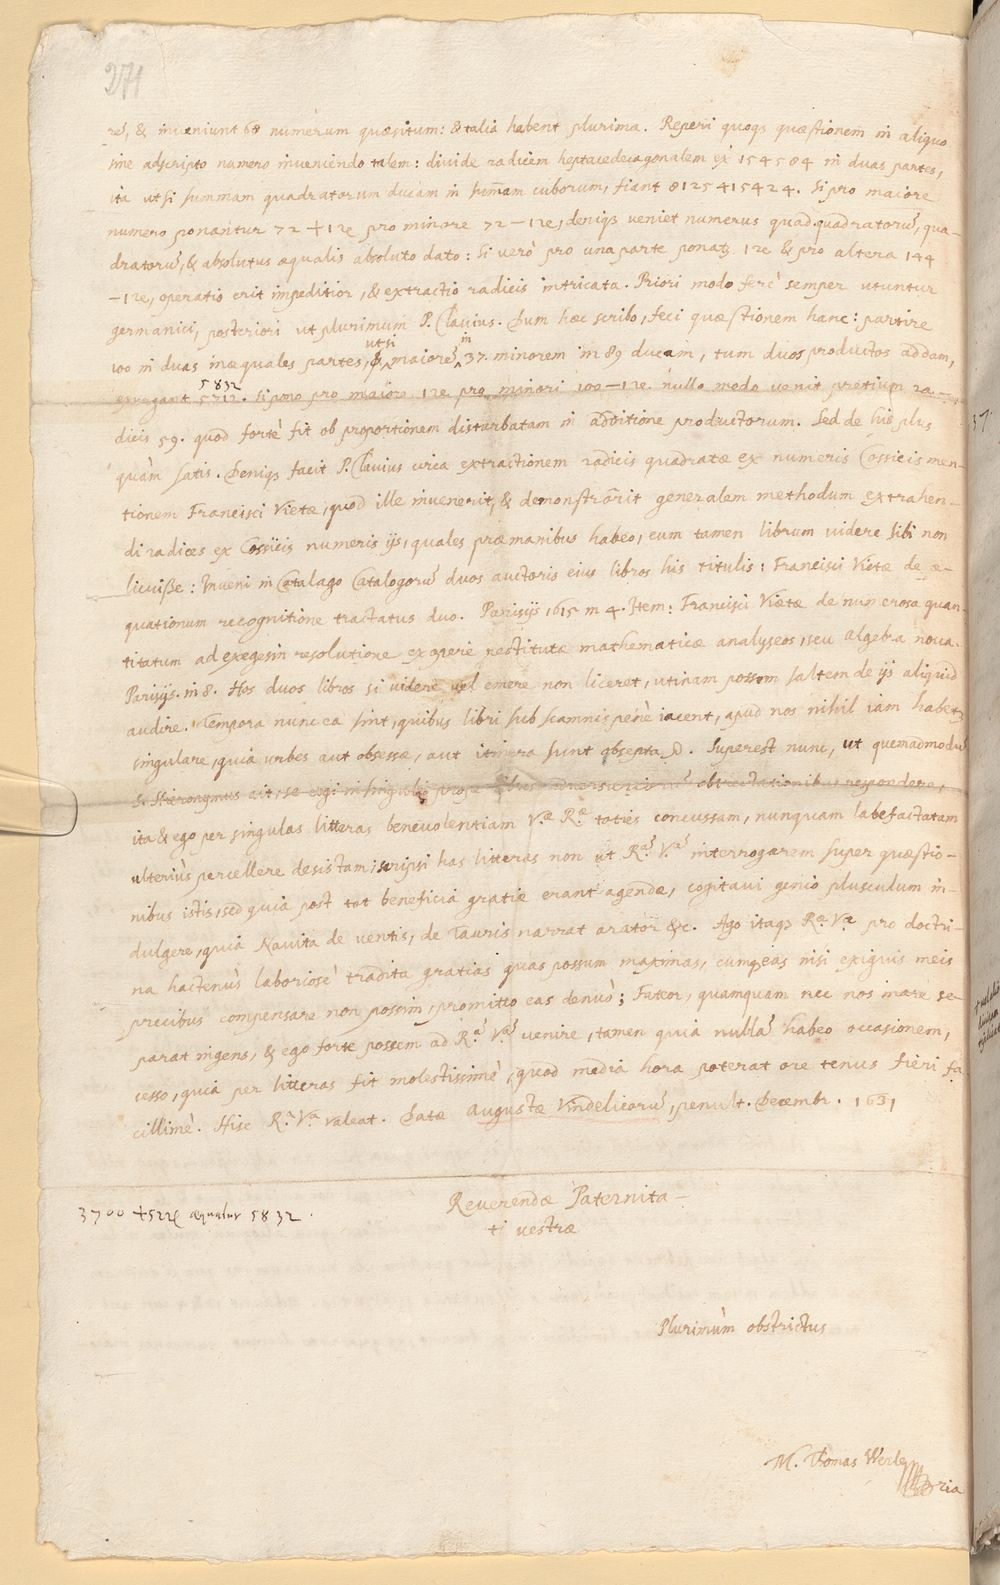 271
res, & inveniunt 68 numerum quæsitum: & talia habent plurima. Reperi quoqȝ quæstionem in aliquo
sine adscripto numero inveniendo talem: divide radicem heptacedecagonalem ex 154584 in duas partes,
ita ut si summam quadratorum ducam in sum̄am cuborum, fiant 8125415424. Si pro maiore
numero ponantur 72 + 1 pro minore 72 — 1, deniqȝ veniet numerus quad.quadratorū, qua-
dratorū, & absolutus æqualis absoluto dato: Si verò pro una parte ponatȝ 1 & pro altera 144
— 1, operatio erit impeditior, & extractio radicis intricata. Priori modo ferè semper utuntur
germanici, posteriori ut plurimum P. Clavius. Dum hæc scribo, feci quæstionem hanc: partire
100 in duas inæquales partes, ut si maiorē in 37. minorem in 89 ducam, tum duos productos addam,
exurgant 5712. 5832 Si pono pro maiore 1 pro minori 100 — 1. nullo modo venit pretium ra-
dicis 59. quod fortè fit ob proportionem disturbatam in additione productorum. Sed de his plus
quàm satis. Deniqȝ facit P. Clavius circa extractionem radicis quadratæ ex numeris Cossicis men-
tionem Francisci Vietæ, quod ille invenerit, & demonstrārit generalem methodum extrahen-
di radices ex Cossicis numeris ijs, quales præ manibus habeo, eum tamen librum videre sibi non
licuiße: Inveni in Catalago Catalogorū duos auctoris eius libros his titulis: Francisci Vietæ de æ-
quationum recognitione tractatus duo. Parisijs 1615 in 4. Item: Francisci Viætæ de numerosa quan-
titatum ad exegesin resolutione ex opere restitutæ mathematicæ analyseos, seu algebra nova.
Parisijs. in 8. Hos duos libros si videre vel emere non liceret, utinam possem saltem de ijs aliquid
audire. Tempora nunc ea sint, quibus libri sub scamnis penè iacent, apud nos nihil iam habetȝ
singulare, quia urbes aut obsessæ, aut itinera sunt obsepta. Superest nunc, ut quemadmodū
S. Hieronymus ait, se cogi in singulis prope libris adversariorū obtrectationibus respondere,
ita & ego per singulas litteras benevolentiam Vᵃᵉ Rᵃᵉ toties concussam, nunquam labefactatam
ulteriùs percellere desistam; scripsi has litteras non ut Rᵃᵐ Vᵃᵐ interrogarem super quæstio-
nibus istis, sed quia post tot beneficia gratiæ erant agendæ, cogitavi genio plusculum in-
dulgere, quia Navita de ventis, de Tauris narrat arator &c. Ago itaqȝ Rᵃᵉ Vᵃᵉ pro doctri-
na hactenùs laboriosè tradita gratias quas possum maximas, cumqȝ eas nisi exiguis meis
precibus compensare non possim, promitto eas denuò; Fateor, quamquam nec nos mare se-
parat ingens, & ego forte possem ad Rᵃᵐ Vᵃᵐ venire, tamen quia nullā habeo occasionem,
cesso, quia per litteras fit molestissimè, quod media hora poterat ore tenus fieri fa-
cillimè. Hisce Rᵃ Vᵃ valeat. Datæ Augustæ Vindelicorū, penult. Decembr. 1631
3700 + 52 æquatur 5832.
Reverendæ Paternita-
ti vestræ
Plurimùm obstrictus
M. Thomas